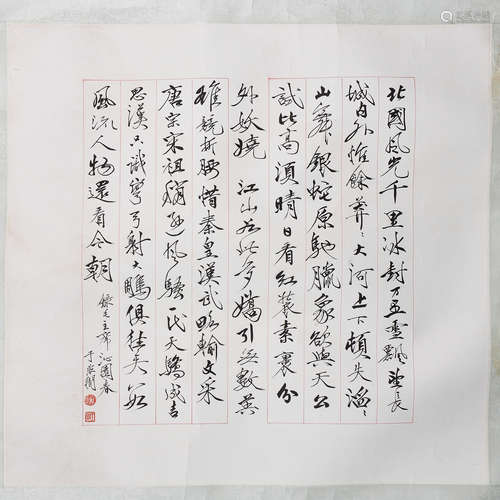 北國風光千里冰封万里雪飄望長
城内外惟餘莽〻大河上下頓失滔〻
山舞銀蛇原馳臘象欲與天公
試比高須晴日看紅裝素裹分
外妖嬈 江山如此多嬌引無數英
雄競折腰惜秦皇漢武略輸文采
唐宗宋祖稍遜風騷一代天驕成吉
思漢只識彎弓射大鵰俱往矣數
風流人物還看今朝
錄毛主席沁園春